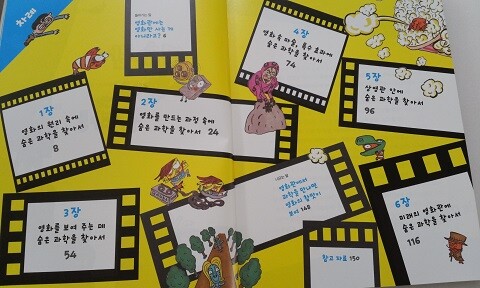 차례
들어가는 말
영화관에는
영화만 있는 게
아니라고? 6
1장
영화의 원리 속에
숨은 과학을 찾아서
8
2장
영화를 만드는 과정 속에
숨은 과학을 찾아서 24
3장
영화를 보여 주는 데
숨은 과학을 찾아서
54
4장
영화 속 마술, 특수 효과에
숨은 과학을 찾아서
74
5장
상영관 안에
숨은 과학을 찾아서
96
6장
미래의 영화관에
숨은 과학을 찾아서
116
나오는 말
영화관에서
과학을 만나면
영화의 참맛이
보여 148
참고 자료 150